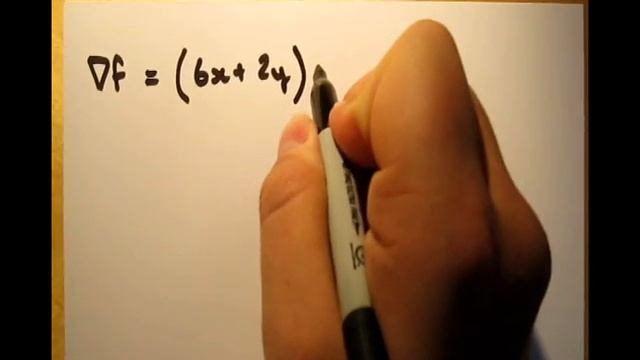 ∇f = (6x + 2y)